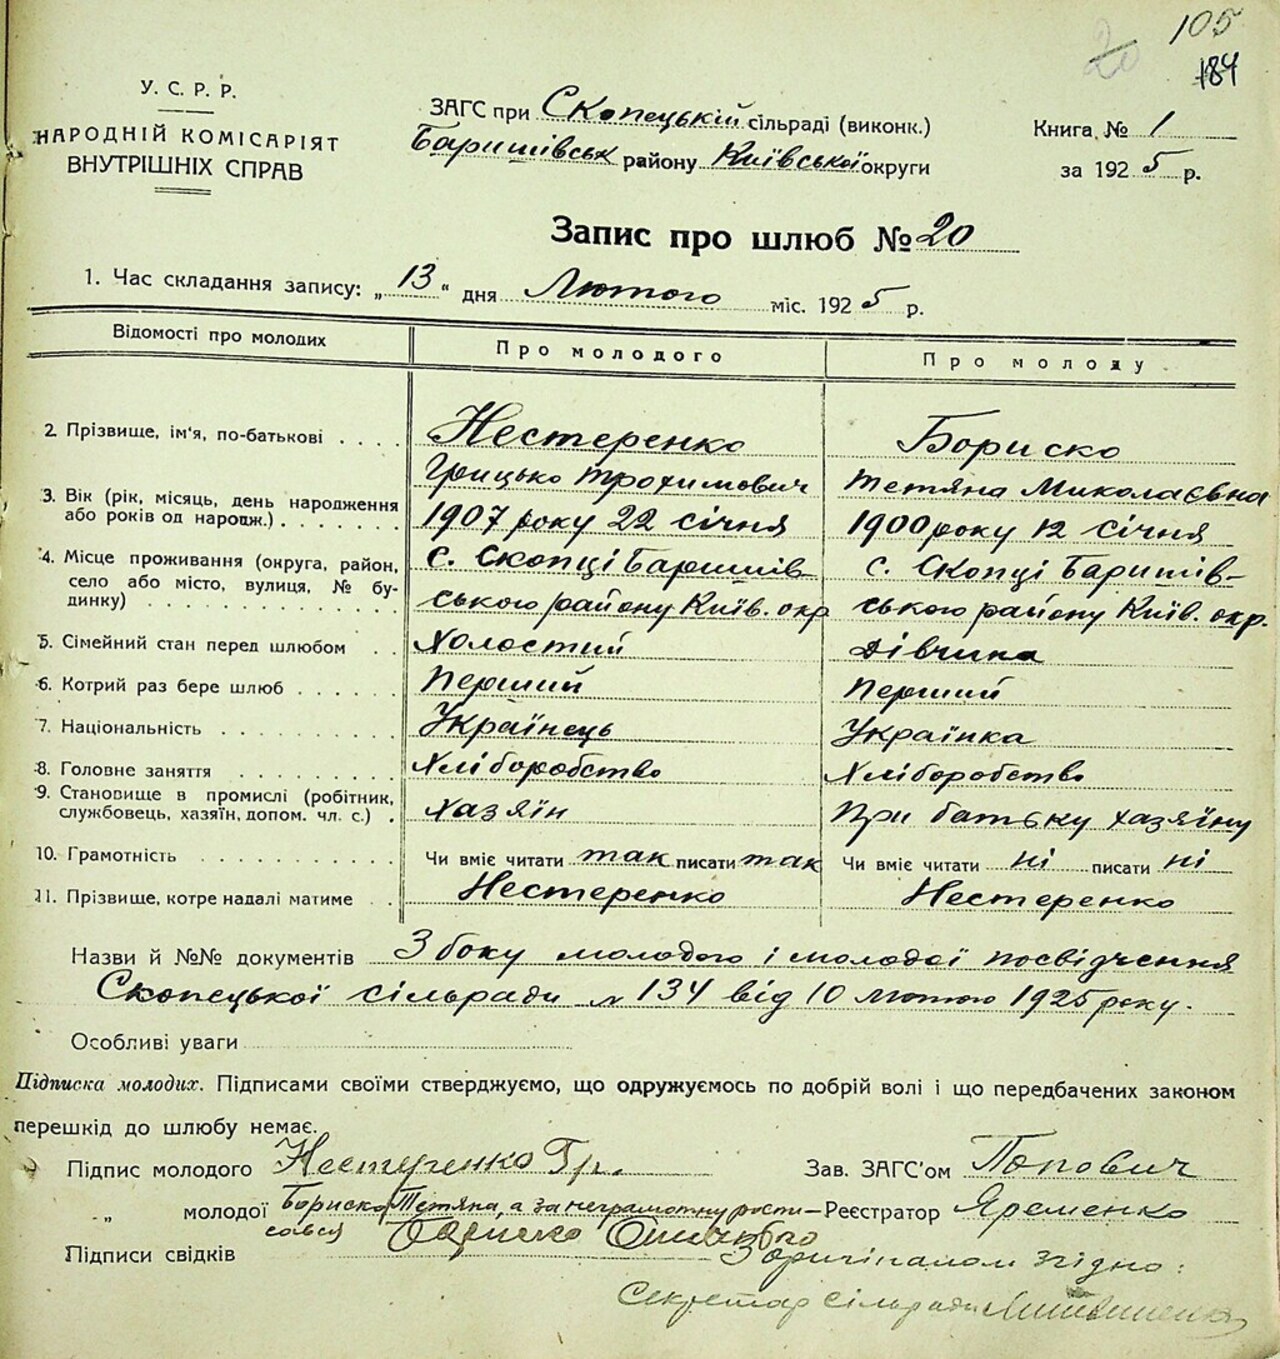 20 105
184
У. С. Р. Р.
НАРОДНІЙ КОМІСАРІЯТ
ВНУТРІШНІХ СПРАВ
ЗАГС при Скопецькій сільраді (виконк.)
Баришівськ району Київської округи
Книга № 1
за 1925 р.
Запис про шлюб № 20
1. Час складання запису: „13“ дня Лютого міс. 1925 р.
Відомості про молодих Про молодого Про молоду
2. Прізвище, ім'я, по-батькові . . . . Нестеренко Бориско
Грицько Трохимович Тетяна Миколаєвна
3. Вік (рік, місяць, день народження
або років од народж.) . . . . . . . 1907 року 22 січня 1900 року 12 січня
4. Місце проживання (округа, район, с. Скопці Баришів- с. Скопці Баришів-
село або місто, вулиця, № бу-
динку) . . . . . . . . . . . . . ського району Київ. окр ського району Київ. окр.
5. Сімейний стан перед шлюбом . . Холостий дівчина
6. Котрий раз бере шлюб . . . . . . Перший перший
7. Національність . . . . . . . . . . Українець Українка
8. Головне заняття . . . . . . . . . Хліборобство Хліборобство
9. Становище в промислі (робітник,
службовець, хазяїн, допом. чл. с.) . Хазяїн При батьку хазяїну
10. Грамотність . . . . . . . . . . . Чи вміє читати так писати так Чи вміє читати ні писати ні
11. Прізвище, котре надалі матиме . . Нестеренко Нестеренко
Назви й №№ документів З боку молодого і молодої посвідчення
Скопецької сільради № 134 від 10 лютого 1925 року.
Особливі уваги
Підписка молодих. Підписами своїми стверджуємо, що одружуємось по добрій волі і що передбачених законом
перешкід до шлюбу немає.
Підпис молодого Нестеренко Гр. Зав. ЗАГС'ом Попович
„ молодої Бориско Тетяна, а за неграмотну рости- Реєстратор Яременко
сався Бориско
Підписи свідків З оригіналом згідно:
Секретар сільради